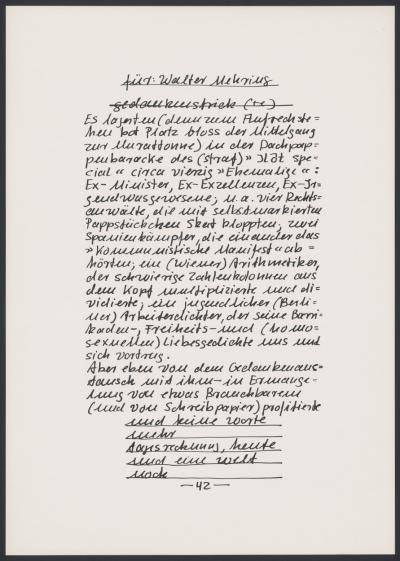 für: Walter Mehring
gedankenstrich (::)
Es lagerten (denn zum Aufrechtste=
hen bot Platz bloss der Mittelgang
zur Unrattonne) in der Dachpap=
penbaracke des (Straf) » Ilôt spe=
cial « circa vierzig » Ehemalige « :
Ex-Minister, Ex-Exzellenzen, Ex-Ir=
gendwasgewesene; u. a. vier Rechts=
anwälte, die mit selbstmarkierten
Pappstückchen Skat kloppten; zwei
Spanienkämpfer, die einander das
» Kommunistische Manifest « ab =
hörten; ein (Wiener) Arithmetiker,
der schwierige Zahlenkolonnen aus
dem Kopf multiplizierte und di=
vidierte; ein jugendlicher (Berli=
ner) Arbeiterdichter, der seine Barri=
kaden-, Freiheits- und (homo=
sexuellen) Liebesgedichte uns und
sich vortrug.
Aber eben von dem Gedankenaus=
tausch mit ihm – in Ermange=
lung von etwas Brauchbarem
(und von Schreibpapier) profitierte
und keine worte
mehr
tagsrechnung, heute
und eine welt
noch
— 42 —